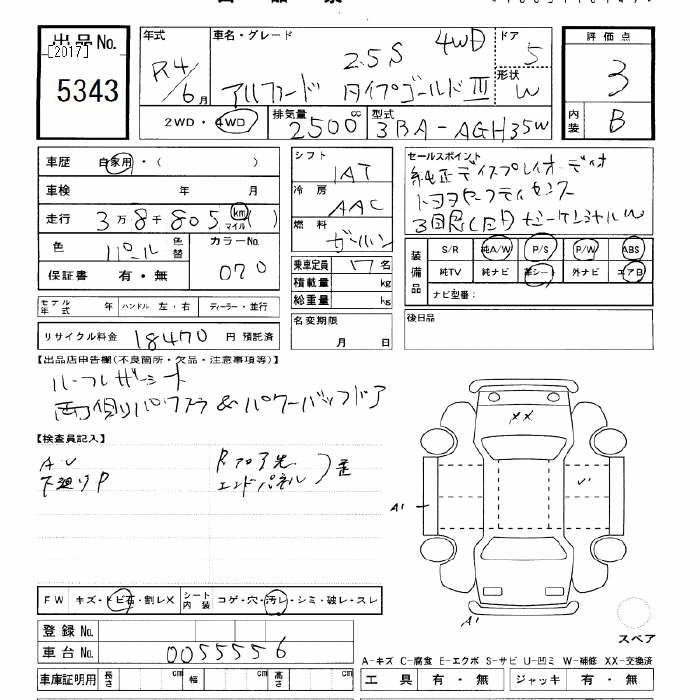 出品No.
[2017]
5343
年式
R4/6月
車名・グレード
2.5S 4WD
アルファード タイプゴールドIII
ドア
5
形状
W
評価点
3
内装
B
2WD・4WD
排気量
2500cc
型式
3BA-AGH35W
車歴 自家用・( )
車検 年 月
走行 3万8千805 km マイル ( )
色 パール 色替
カラーNo.
070
保証書 有・無
モデル年式 年 ハンドル 左・右 ディーラー・並行
リサイクル料金 18470円 預託済
シフト
IAT
冷房
AAC
燃料
ガソリン
乗車定員 7名
積載量 kg
総重量 kg
名変期限
月 日
セールスポイント
純正ディスプレイオーディオ
トヨタセーフティセンス
装備品
S/R 純A/W P/S P/W ABS
純TV 純ナビ 革シート 外ナビ エアB
ナビ型番:
後日品
【出品店申告欄(不良箇所・欠品・注意事項等)】
ハーフレザーシート
両側パワスラ&パワーバックドア
【検査員記入】
AU
下廻りP
R.フロア先
エンドパネル
歪
XX
A1
A1
スペア
FW キズ・トビ石・割レX シート内装 コゲ・穴・汚レ・シミ・破レ・スレ
登録No.
車台No. 0055556
車庫証明用 長さ cm 幅 cm 高さ cm
A-キズ C-腐食 E-エクボ S-サビ U-凹ミ W-補修 XX-交換済
工具 有・無 ジャッキ 有・無